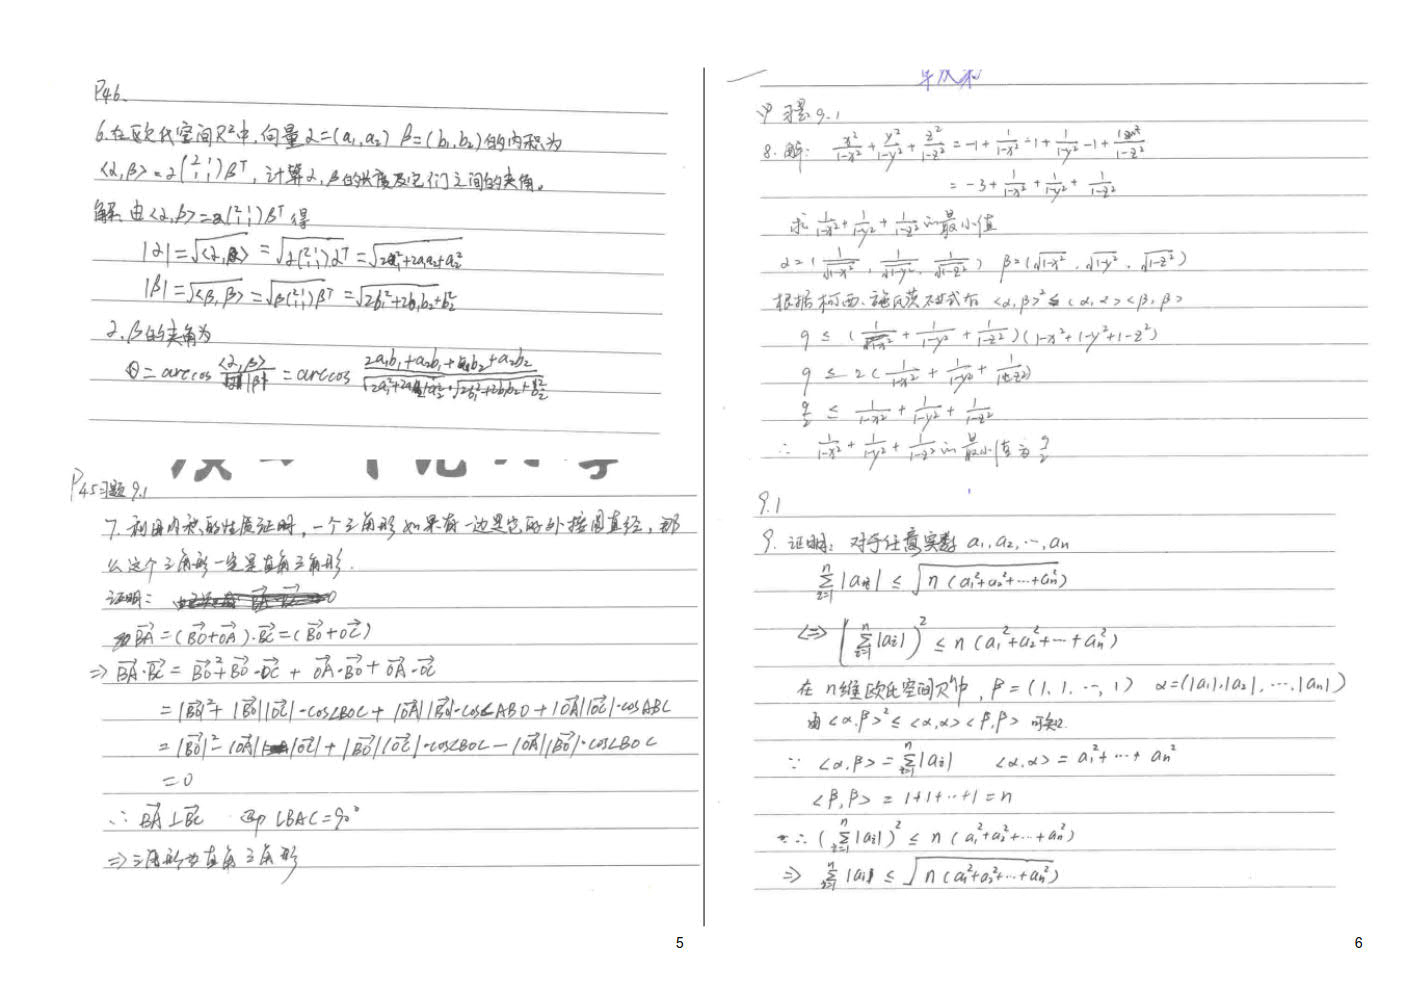 P46.
6.在欧氏空间R²中,向量α=(a₁,a₂) β=(b₁,b₂)的内积为
<α,β>=α(2 1; 1 1)βᵀ,计算α,β的长度及它们之间的夹角。
解:由<α,β>=α(2 1; 1 1)βᵀ得
|α|=√<α,α> = √(α(2 1; 1 1)αᵀ) = √(2a₁²+2a₁a₂+a₂²)
|β|=√<β,β> = √(β(2 1; 1 1)βᵀ) = √(2b₁²+2b₁b₂+b₂²)
α.β的夹角为
θ=arccos <α,β>/(|α||β|) = arccos (2a₁b₁+a₂b₁+a₁b₂+a₂b₂)/(√(2a₁²+2a₁a₂+a₂²)·√(2b₁²+2b₁b₂+b₂²))
P45习题9.1
7.利用内积的性质证明,一个三角形如果有一边是它的外接圆直径,那
么这个三角形一定是直角三角形.
证明:
BA=(BO+OA).BC=(BO+OC)
⇒ BA·BC = BO²+BO·OC + OA·BO + OA·OC
=|BO|²+|BO||OC|·cos∠BOC+|OA||BO|·cos∠ABO+|OA||OC|·cosABC
=|BO|²-|OA||OC|+|BO||OC|·cos∠BOC-|OA||BO|·cos∠BOC
=0
∴ BA⊥BC 即∠BAC=90°
⇒三角形为直角三角形
5
习题9.1
8.解: x²/(1-x²)+y²/(1-y²)+z²/(1-z²) = -1+1/(1-x²)-1+1/(1-y²)-1+1/(1-z²)
= -3+1/(1-x²)+1/(1-y²)+1/(1-z²)
求1/(1-x²)+1/(1-y²)+1/(1-z²)的最小值
α=(1/√(1-x²),1/√(1-y²),1/√(1-z²)) β=(√(1-x²),√(1-y²),√(1-z²))
根据柯西.施瓦茨不等式有 <α,β>²≤<α,α><β,β>
9 ≤ (1/(1-x²)+1/(1-y²)+1/(1-z²))(1-x²+1-y²+1-z²)
9 ≤ 2(1/(1-x²)+1/(1-y²)+1/(1-z²))
9/2 ≤ 1/(1-x²)+1/(1-y²)+1/(1-z²)
∴ 1/(1-x²)+1/(1-y²)+1/(1-z²)的最小值为9/2
9.1
9.证明:对于任意实数 a₁,a₂,…,aₙ
∑ⁿᵢ₌₁|aᵢ| ≤ √(n(a₁²+a₂²+…+aₙ²))
<=> (∑ⁿᵢ₌₁|aᵢ|)² ≤ n(a₁²+a₂²+…+aₙ²)
在n维欧氏空间Rⁿ中,β=(1,1,…,1) α=(|a₁|,|a₂|,…,|aₙ|)
由<α,β>²≤<α,α><β,β>可知
∵ <α,β>=∑ⁿᵢ₌₁|aᵢ| <α,α>=a₁²+…+aₙ²
<β,β>=1+1+…+1=n
∴ (∑ⁿᵢ₌₁|aᵢ|)² ≤ n(a₁²+a₂²+…+aₙ²)
⇒ ∑ⁿᵢ₌₁|aᵢ| ≤ √(n(a₁²+a₂²+…+aₙ²))
6